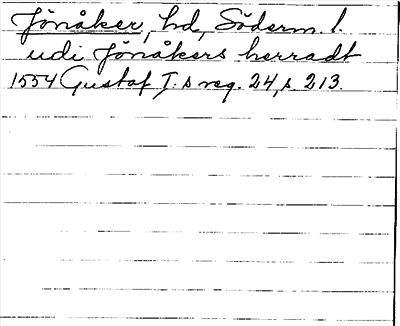 Jönåker, hd, Söderm. l.
udi Jönåkers herradt
1554 Gustaf I:s reg. 24, s. 213.